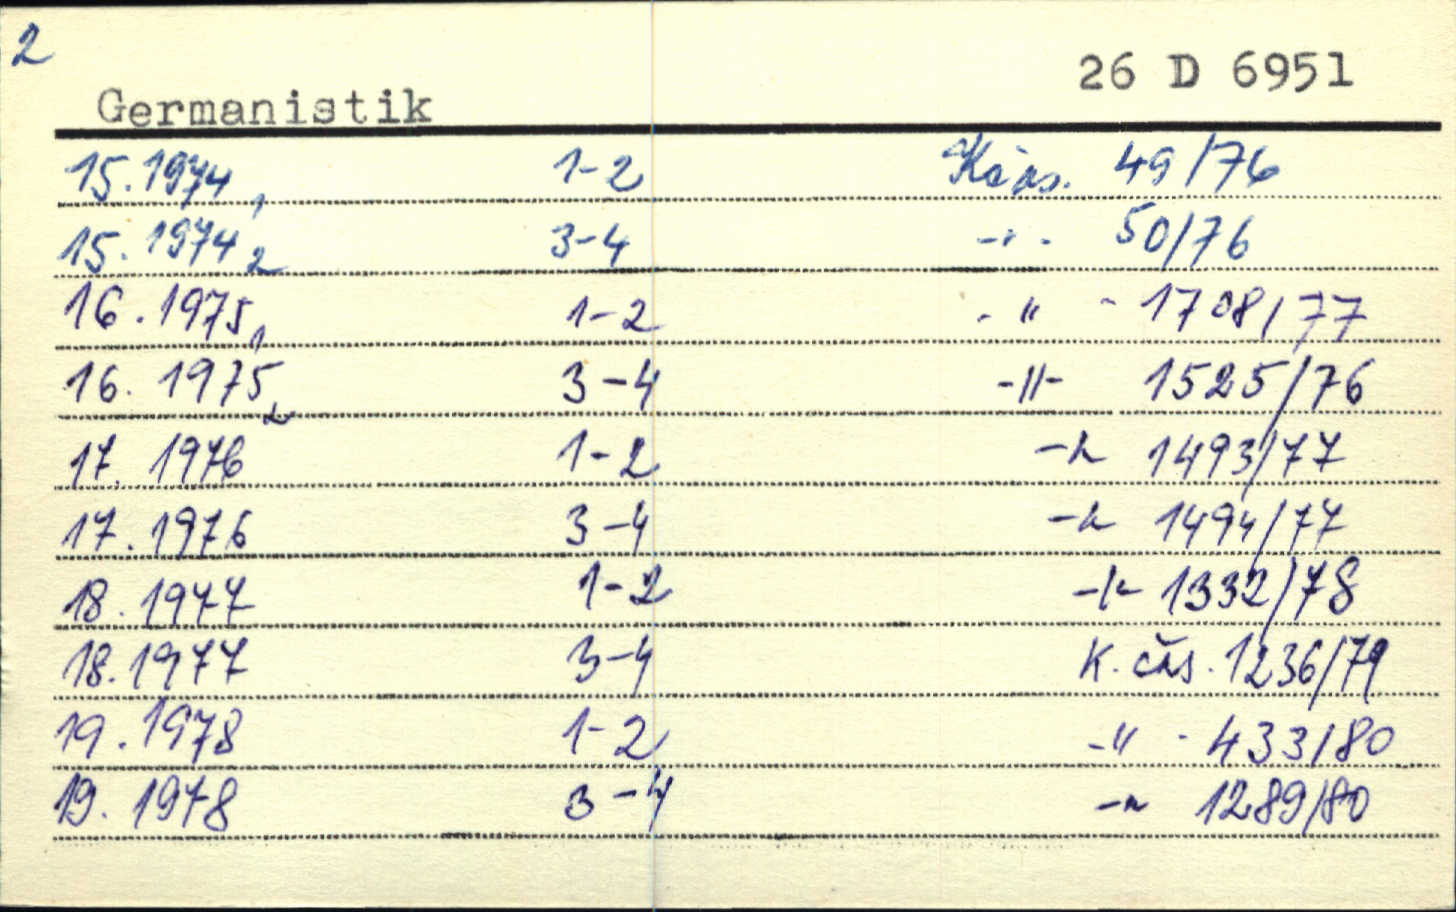 2
26 D 6951
Germanistik
15.1974,1 1-2 Kčas. 49/76
15.1974 2 3-4 -"- 50/76
16.1975,1 1-2 -"- 1708/77
16.1975,2 3-4 -"- 1525/76
17.1976 1-2 -"- 1493/77
17.1976 3-4 -"- 1494/77
18.1977 1-2 -"- 1332/78
18.1977 3-4 K.čas. 1236/79
19.1978 1-2 -"- 433/80
19.1978 3-4 -"- 1289/80